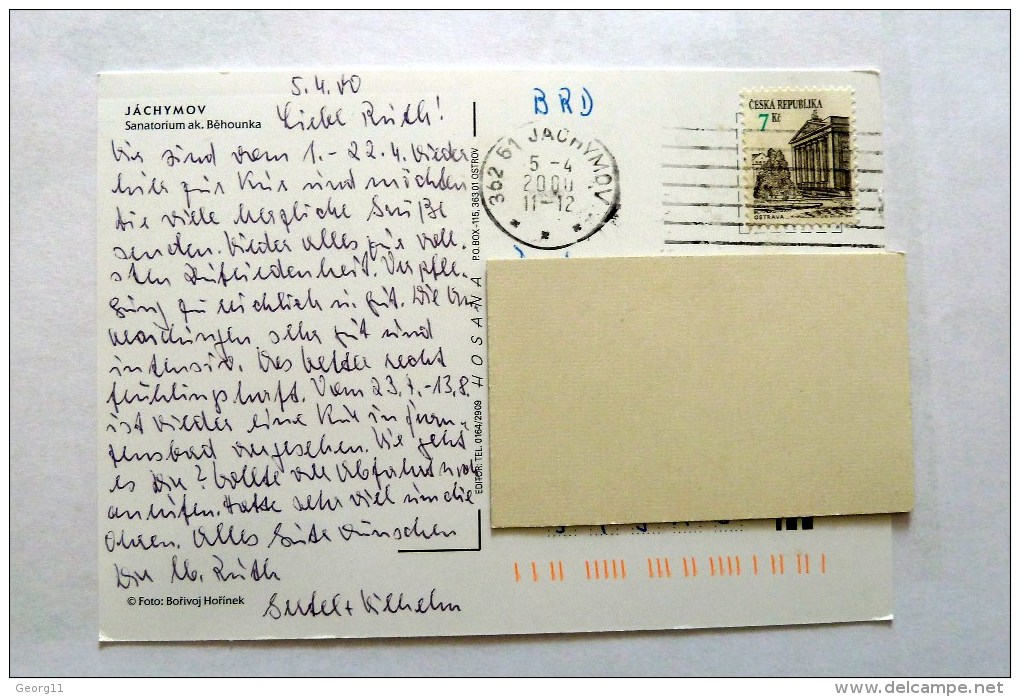 5.4.00
JÁCHYMOV
Sanatorium ak. Běhounka
Liebe Ruth!
Wir sind vom 1.-22.4. wieder
hier zur Kur und möchten
Dir viele herzliche Grüße
senden. Wieder alles zur voll-
sten Zufriedenheit. Verpfle-
gung zu reichlich u. gut. Die An-
wendungen sehr gut und
intensiv. Das Wetter recht
frühlingshaft. Vom 23.7.-13.8.
ist wieder eine Kur in Fran-
zensbad vorgesehen. Wie geht
es Dir? Wollte vor Abfahrt noch
anrufen. Hatte sehr viel um die
Ohren. Alles Gute wünschen
Dir lb. Ruth
Wilhelm
© Foto: Bořivoj Hořínek
EDITOR: TEL. 0164/2909 HOSANA P.O. BOX -115, 363 01 OSTROV
BRD
362 61 JÁCHYMOV
5.-4
2000
11-12
ČESKÁ REPUBLIKA
7 Kč
OSTRAVA
Georg11
http://www.delcampe.net